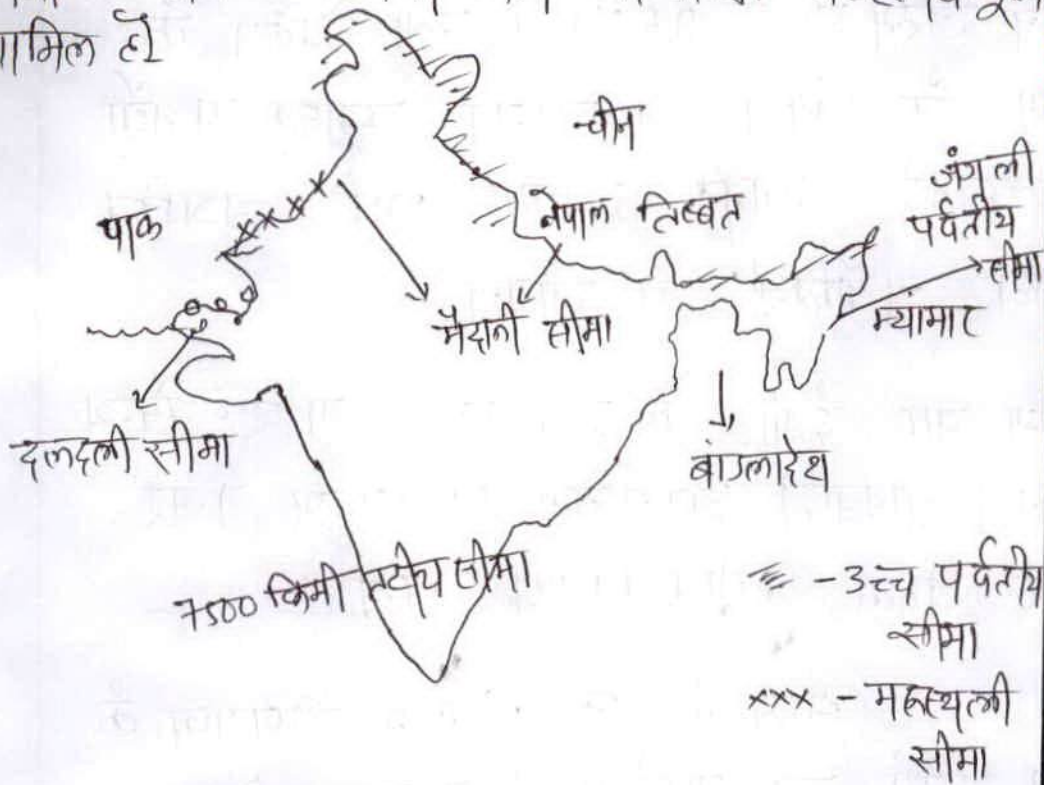 शामिल हो
चीन
जंगली
पर्वतीय
सीमा
पाक
नेपाल तिब्बत
म्यांमार
मैदानी सीमा
दलदली सीमा
बांग्लादेश
7500 किमी तटीय सीमा
- उच्च पर्वतीय
सीमा
××× - मरुस्थली
सीमा